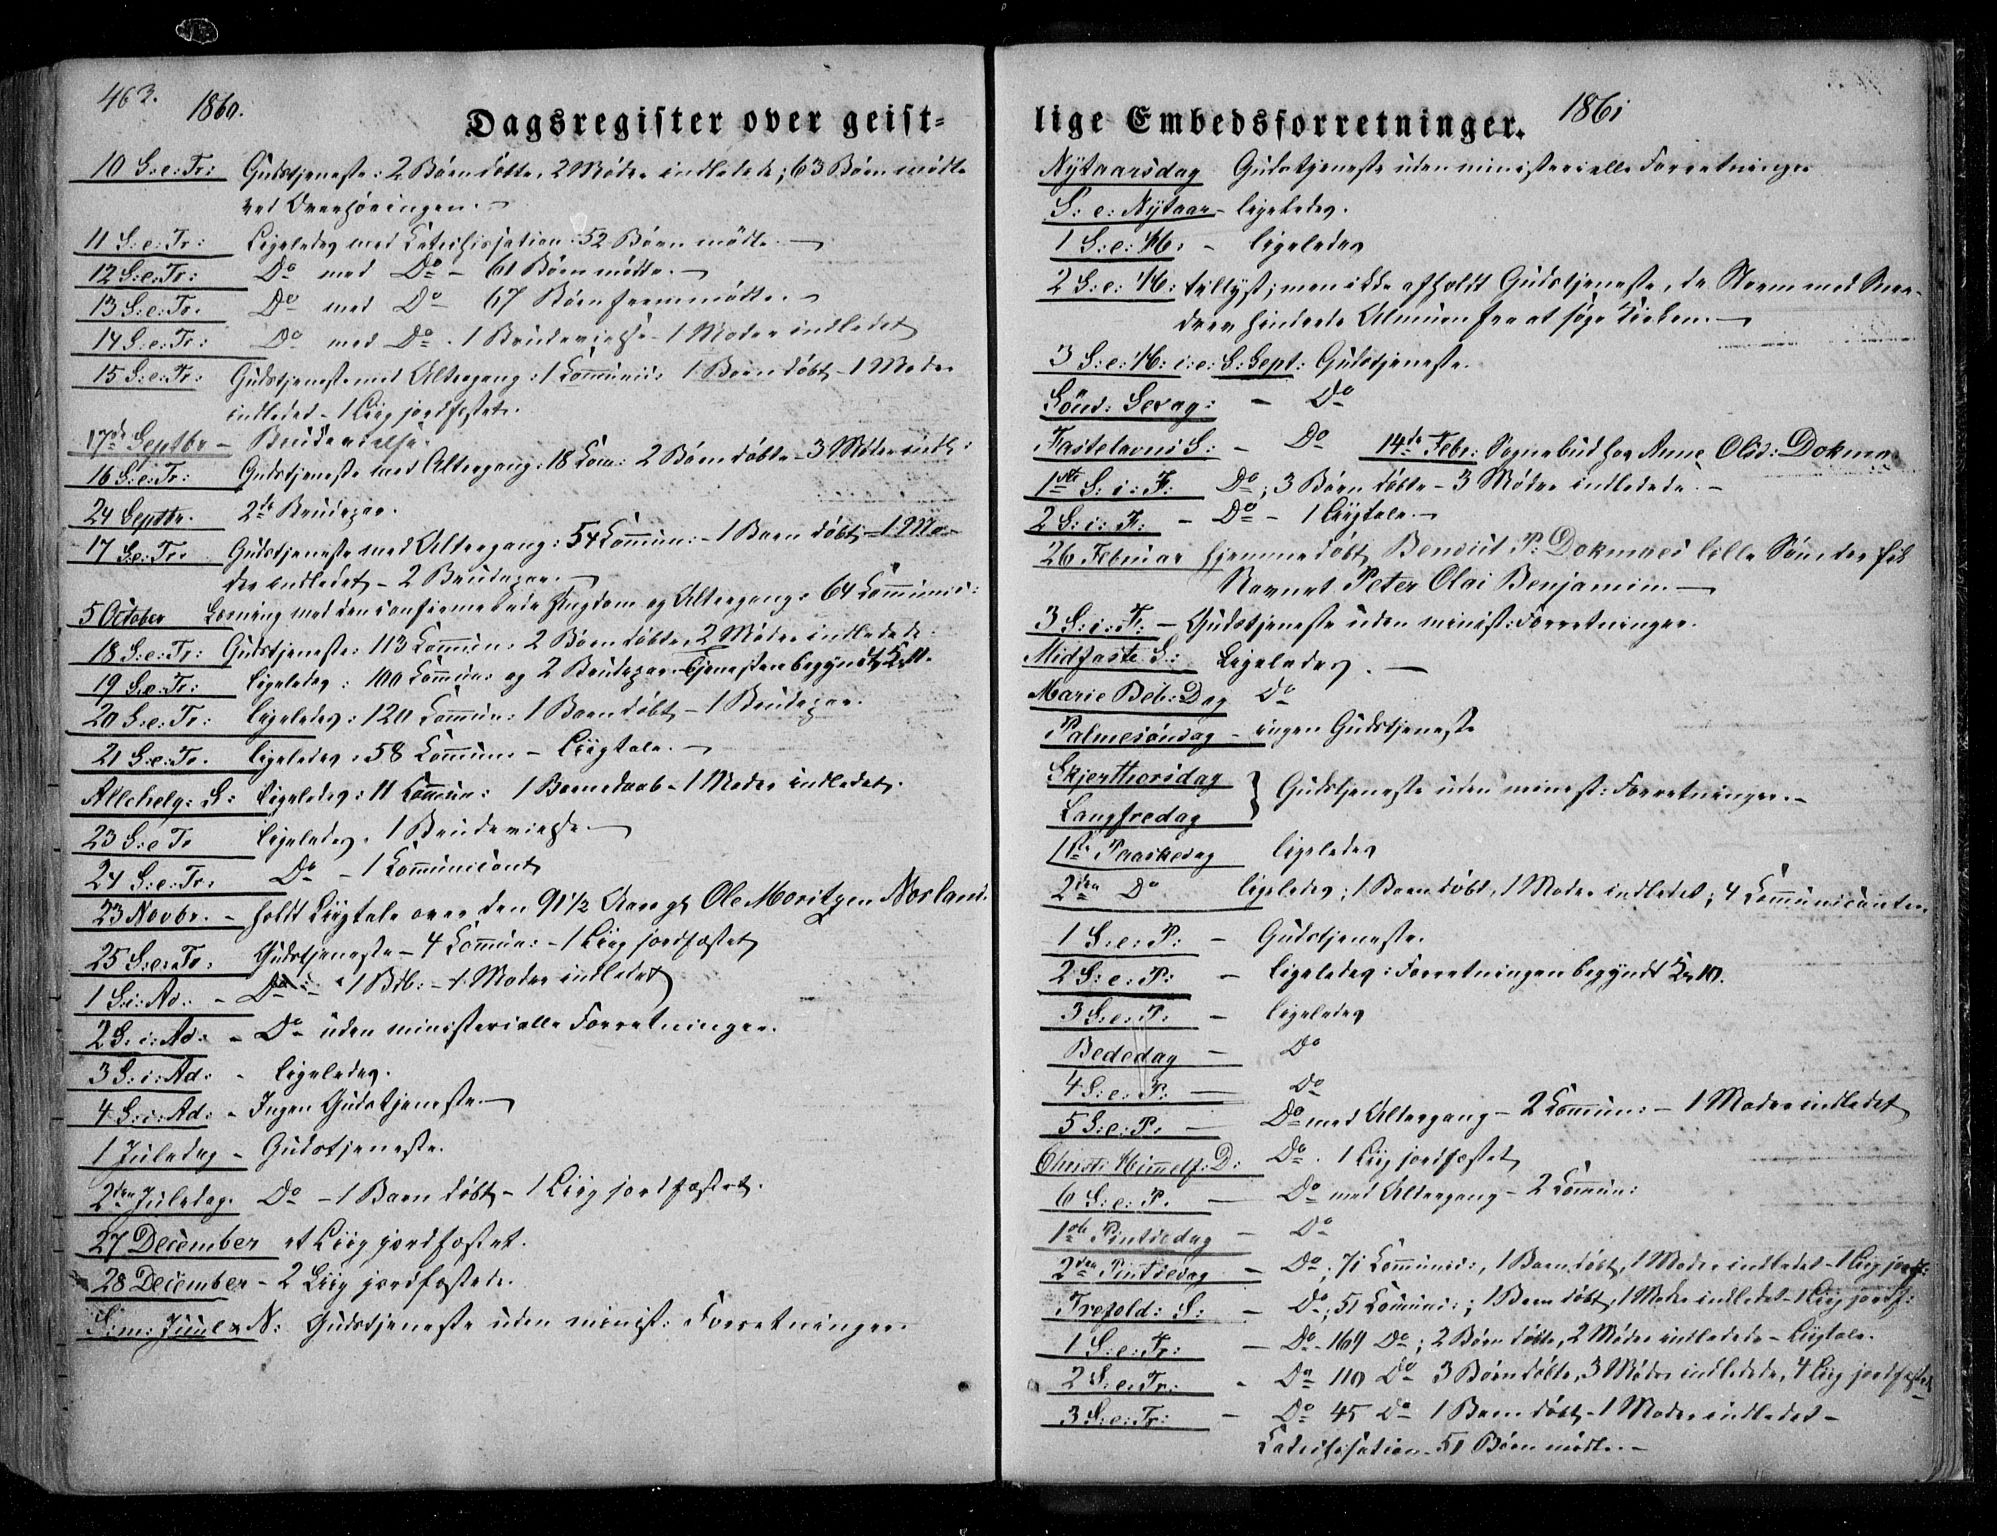 463.
1860.
Dagsregister over geist=
10 S:e:Tr: Gudstjeneste: 2 Børn døbte, 2 Mødre indledede; 63 Børn mødte
ved Overhøringen. –
11 S:e:Tr: Ligeledes med Catechisation: 52 Børn mødte. –
12 S:e:Tr: Do med Do – 61 Børn mødte. –
13 S:e:Tr. Do med Do 67 Børn fremmødte. –
14 S:e:Tr: Do med Do . 1 Brudevielse – 1 Moder indledet
15 S:e:Tr: Gudstjeneste med Altergang: 1 Communic: 1 Barn døbt – 1 Moder
indledet – 1 Liig jordfæstet.
17de Septbr – Brudevielse.
16 S:e:Tr: Gudstjeneste med Altergang: 18 Com: 2 Børn døbte – 3 Mødre indl:
24 Septbr. 2de Brudepar.
17 S:e:Tr: Gudstjeneste med Altergang: 54 Commun: – 1 Barn døbt – 1 Mo-
der indledet – 2 Brudepar. –
5 October Læsning med den confirmerede Ungdom og Altergang: 64 Communic:
18 S:e:Tr: Gudstjeneste: 113 Commun: 2 Børn døbte, 2 Mødre indledede:
19 S:e:Tr: Ligeledes: 100 Commun: og 2 Brudepar. Tjenesten begyndt Kl 11.
20 S:e:Tr: Ligeledes: 120 Commun: 1 Barn døbt – 1 Brudepar.
21 S:e:Tr. Ligeledes: 58 Commun: – Liigtale. –
Allehelg: S: Ligeledes: 11 Commun: 1 Barnedaab – 1 Moder indledet.
23 S:e Tr Ligeledes. 1 Brudevielse. –
24 S:e:Tr: Do – 1 Communicant
23 Novbr. – holdt Liigtale over den 91½ Aar gl. Ole Moritzen Norland.
25 S:e:Tr: Gudstjeneste – 4 Commun: – 1 Liig jordfæstet
1 S:i:Ad: – Do – 1 Btb: – 1 Moder indledet
2 S:i:Ad: – Do uden ministerielle Forretninger.
3 S:i:Ad: – Ligeledes.
4 S:i:Ad: – Ingen Gudstjeneste –
1 Juledag – Gudstjeneste.
2den Juledag. Do – 1 Barn døbt – 1 Liig jordfæstet.
27 December et Liig jordfæstet.
28 December – 2 Liig jordfæstede.
S:m: Juul & N: Gudstjeneste uden minist: Forretninger.
lige Embedsforretninger.
1861
Nytaarsdag Gudstjeneste uden ministerielle Forretninger
S: e: Nytaar – Ligeledes.
1 S:e: H: – Ligeledes
2 S:e: H: tillyst; men ikke afholdt Gudstjeneste, da Storm med Snee-
drev hindrede Almuen fra at søge Kirken. –
3 S:e:H: i:e: S: Sept: Gudstjeneste.
Sönd: Sexag: – Do
Fastelavns S: – Do 14de Febr: Sognebud hos Anne Olsd: Dokmo
1ste S: i: F: Do; 3 Børn døbte – 3 Mødre indledede. –
2 S: i: F: – Do – 1 Liigtale. –
26 Februar hjemmedøbt Bendict P: Dokmoes lille Søn der fik
Navnet Peter Olai Benjamin. –
3 S:i:F: – Gudstjeneste uden minist: Forretninger.
Midfaste S: Ligeledes. –
Marie Beb: Dag Do
Palmesöndag – ingen Gudstjeneste
Skjerthorsdag
Langfredag } Gudstjeneste uden minist: Forretninger. –
1ste Paaskedag Ligeledes
2den Do Ligeledes; 1 Barn døbt, 1 Moder indledet; 4 Communicanter.
1 S:e:P: – Gudstjeneste.
2 S:e:P: – Ligeledes: Forretningen begyndt Kl 10.
3 S:e:P: – Ligeledes
Bededag – Do
4 S:e:P: – Do
5 S:e:P: – Do med Altergang – 2 Commun: – 1 Moder indledet
Christi Himmelf: D: Do . 1 Liig jordfæstet
6 S:e:P. – Do med Altergang – 2 Commun:
1ste Pintsedag – Do
2den Pintsedag – Do; 71 Communic:, 1 Barn døbt, 1 Moder indledet – 1 Liig jordf:
Trefold: S: – Do; 51 Communic:; 1 Barn døbt, 1 Moder indledet – 1 Liig jordf:
1 S:e:Tr: – Do – 169 Do; 2 Børn døbte, 2 Mødre indledede – Liigtale.
2 S:e:Tr: – Do 110 Do 3 Børn døbte, 3 Mødre indledede, 4 Liig jordfæstede
3 S:e:Tr: – Do 45 Do 1 Barn døbt – 1 Moder indledet –
Catechisation – 51 Børn mødte. –